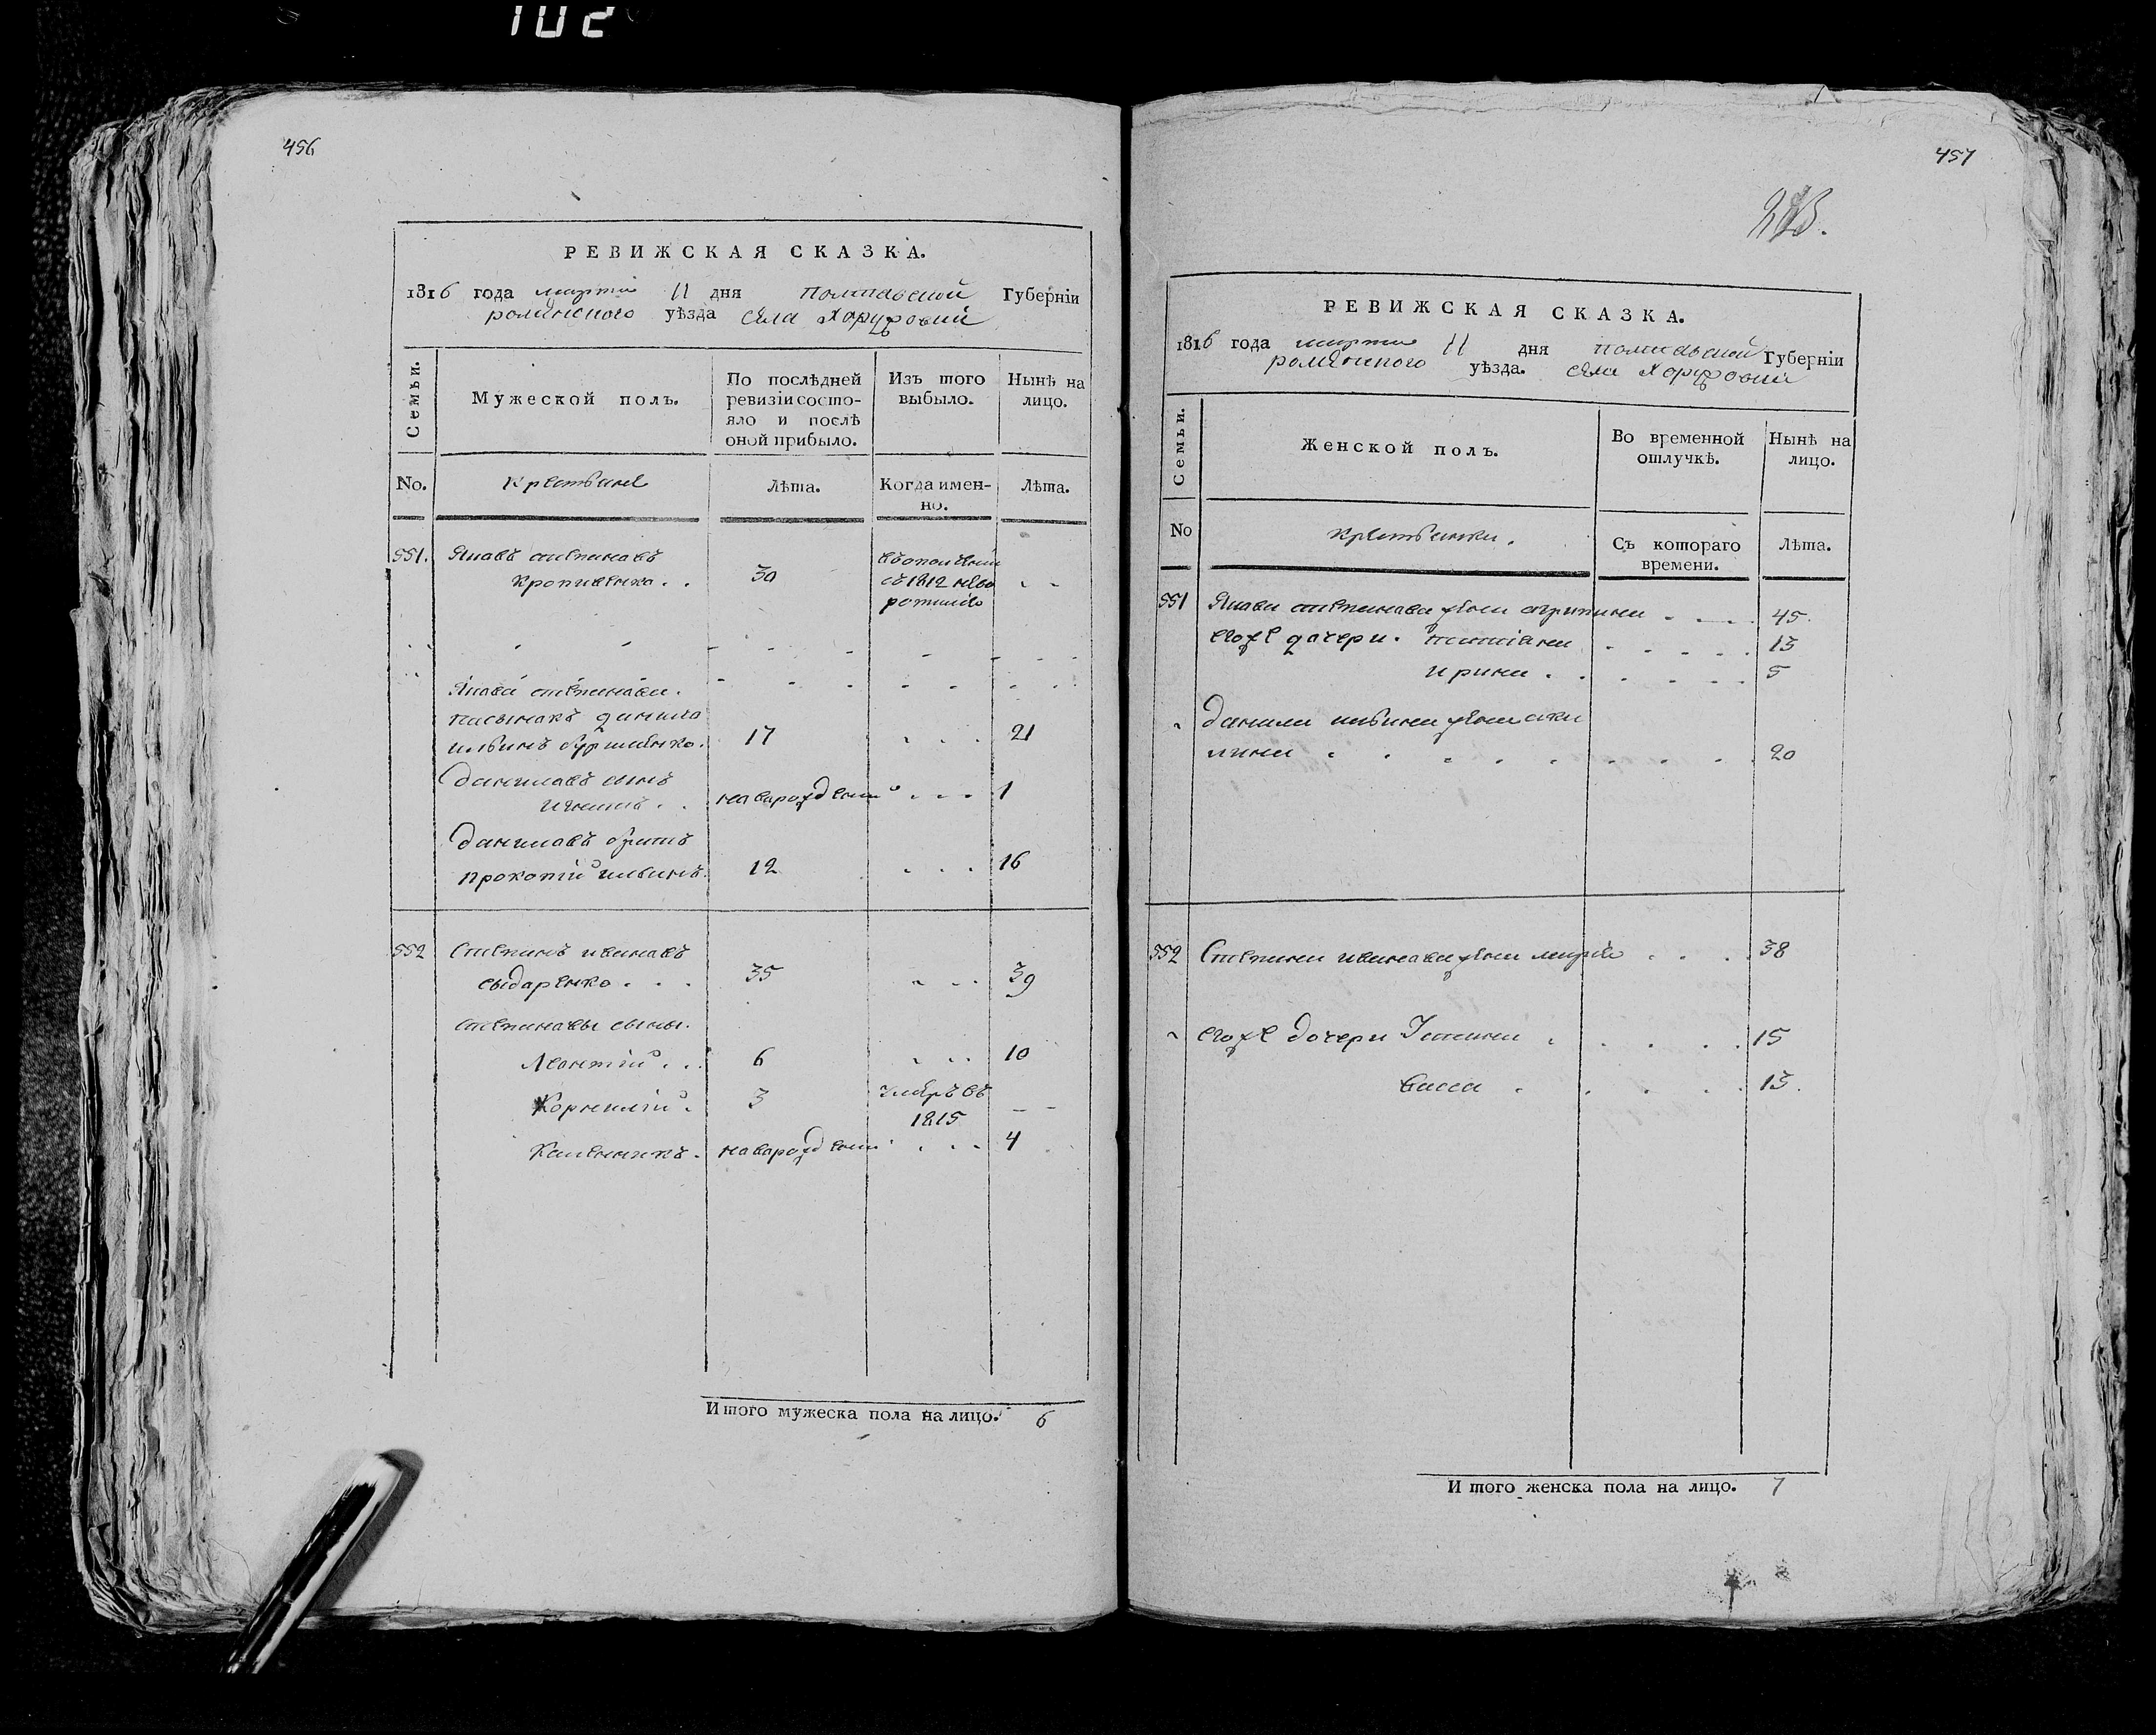 102
456
РЕВИЖСКАЯ СКАЗКА.
1816 года марта 11 дня Полтавской Губерніи
роменского уѣзда села Хоружовки
Семьи.
Мужеской полъ.
По послѣдней ревизіи состо-
яло и послѣ
оной прибыло.
Изъ того
выбыло.
Нынѣ на
лицо.
No.
Крестьяне
Лѣта.
Когда имен-
но.
Лѣта.
551. Яковъ степановъ
Кропивенко . . 30
въ ополченіи
съ 1812 невоз
ротился
Якова степанова.
пасынокъ данило
ильинъ бурименко. 17 . . . 21
даниловъ сынъ
игнатъ . . новорожденный . . . 1
даниловъ братъ
прокопій ильинъ. 12 . . . 16
552 Степанъ ивановъ
сыдаренко . . . 35 . . . 39
степановы сыны.
Леонтій . . . 6 . . . 10
Корнилій . 3 умеръ въ
1815 — —
Каленникъ. новорожденный . . . 4
Итого мужеска пола на лицо. 6
457
РЕВИЖСКАЯ СКАЗКА.
1816 года марта 11 дня полтавской Губерніи
роменского уѣзда. села Хоружовки
Семьи.
Женской полъ.
Во временной
отлучкѣ.
Нынѣ на
лицо.
No
крестьянки.
Съ котораго
времени.
Лѣта.
551 Якова степанова жена агрипина . . . 45.
егоже дочери. татіана . . . . . 13
ирина . . . . . . 5
данила ильина жена аки
лина . . . . . . . . . 20
552 Степана иванова жена марія . . . 38
егоже дочери Устина . . . . . 15
Васса . . . . . 13.
Итого женска пола на лицо. 7